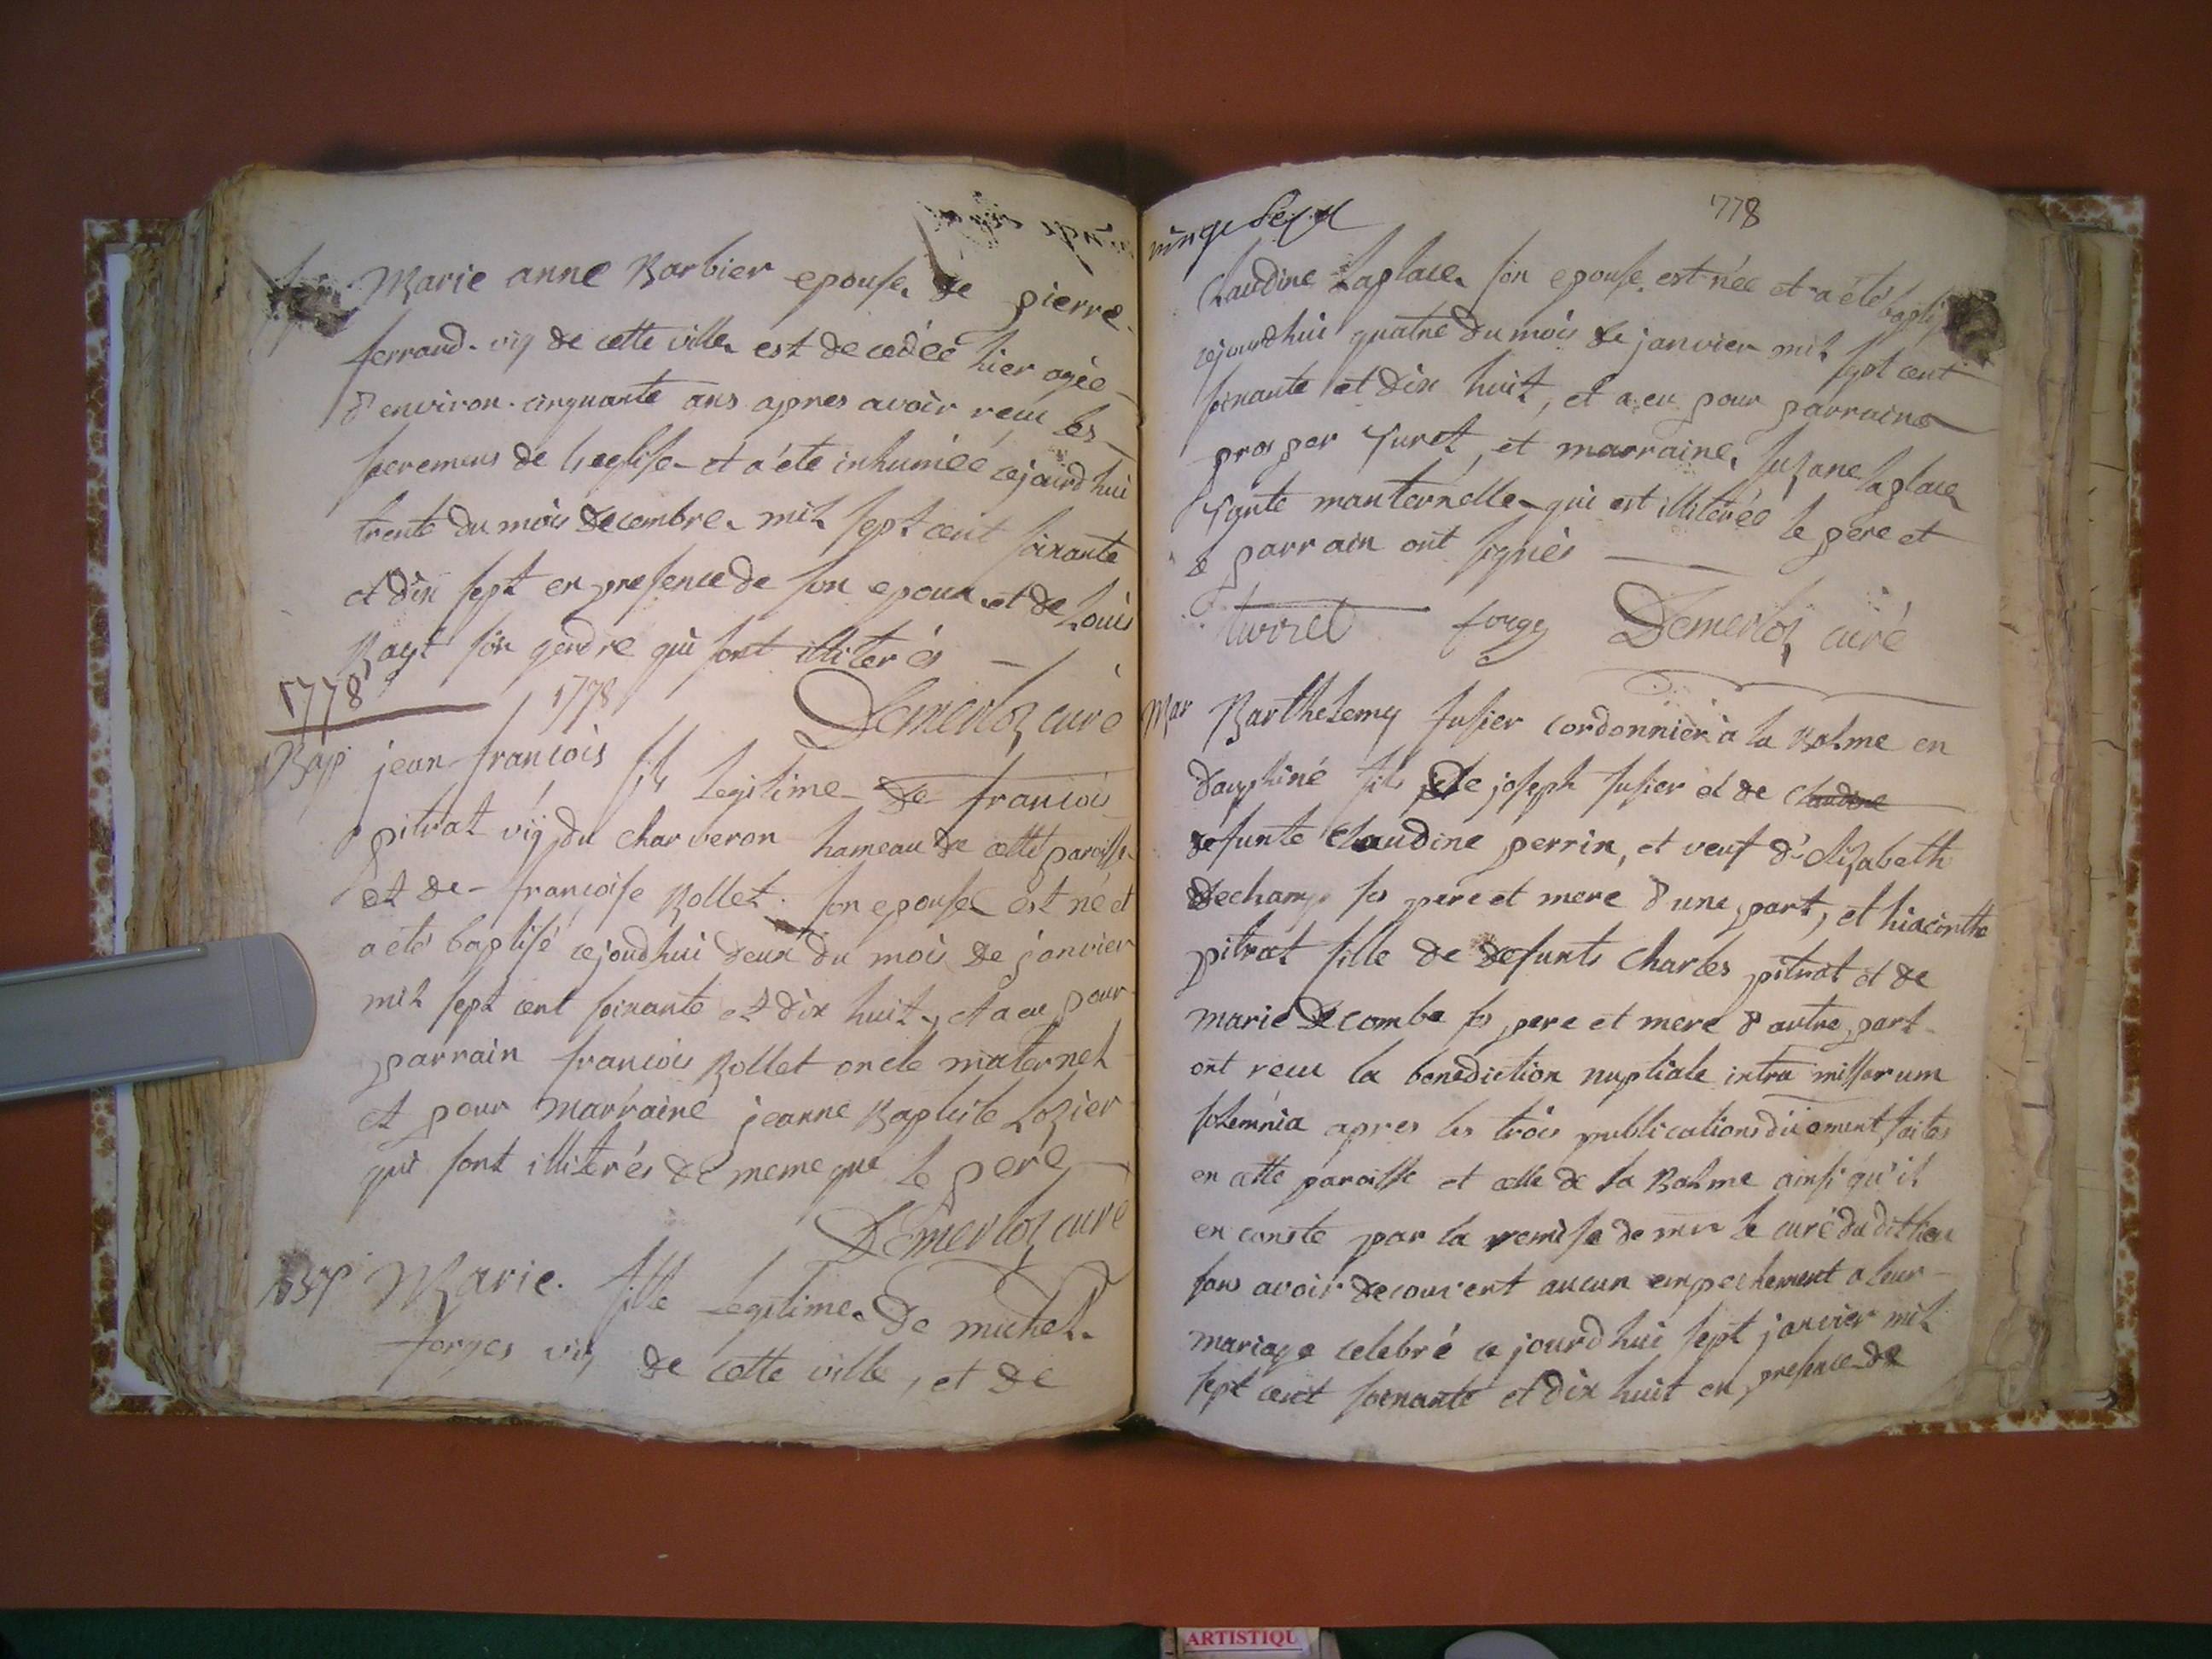 Marie anne Barbier epouse de pierre
ferrand vig de cette ville est decedée hier agée
d'environ cinquante ans apres avoir recu les
sacremens de l'eglise et a été inhumée cejourdhui
trente du mois decembre mil sept cent soixante
et dix sept en presence de son epoux et de Louis
son gendre qui sont illiterés
1778 1778
Demerloz curé
Bap jean francois fils legitime de francois
pitrat vig du charveron hameau de cette paroisse
et de francoise Rollet son epouse est né et
a été baptisé cejoudhui deux du mois de janvier
mil sept cent soixante et dix huit, et a eu pour
parrain francois Rollet oncle maternel
et pour marraine jeanne Baptiste Lozier
qui sont illiterés de meme que le pere
Demerloz curé
Bap Marie fille legitime de michel
forges vig de cette ville, et de
vingt sept
1778
Claudine Laplace son epouse est née et a été
cejourdhui quatre du mois de janvier mil sept cent
soixante et dix huit, et a eu pour parrain
prosper turet, et marraine suzane laplace
tante manternelle qui est illiterée le pere et
le parrain ont signés
forge Demerloz curé
Mar Barthelemy fusier cordonnier à la Balme en
dauphiné fils de joseph fusier et de claudine
defunte Claudine perrin, et veuf d'elizabeth
Dechamp ses pere et mere d'une part, et hiacinthe
pitrat fille de defunts Charles pitrat et de
marie Decombe ses pere et mere d'autre part
ont recu la benediction nuptiale intra missarum
solemnia apres les trois publications düement faites
en cette paroisse et celle de la Balme ainsi qu'il
en conste par la remise de mr le curé du dit lieu
sans avoir decouvert aucun empechement a leur
mariage celebré cejourdhui sept janvier mil
sept cent soixante et dix huit en presence de
ARTISTIQU